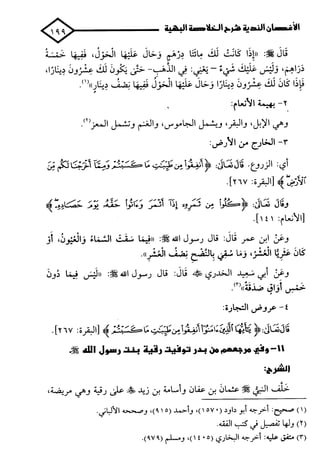 الأغصان الندية شرح الخلاصة البهية
١٩٩
قَالَ ﷺ: «إِذَا كَانَتْ لَكَ مِائَتَا دِرْهَمٍ وَحَالَ عَلَيْهَا الْحَوْلُ، فَفِيهَا خَمْسَةُ
دَرَاهِمَ، وَلَيْسَ عَلَيْكَ شَيْءٌ - يَعْنِي: فِي الذَّهَبِ- حَتَّى يَكُونَ لَكَ عِشْرُونَ دِينَارًا،
فَإِذَا كَانَ لَكَ عِشْرُونَ دِينَارًا وَحَالَ عَلَيْهَا الْحَوْلُ فَفِيهَا نِصْفُ دِينَارٍ»(١).
٢- بهيمة الأنعام:
وهي الإبل، والبقر، ويشمل الجاموس، والغنم وتشمل المعز(٢).
٣- الخارج من الأرض:
أي: الزروع. قَالَ تَعَالَى: ﴿أَنفِقُوا مِن طَيِّبَٰتِ مَا كَسَبْتُمْ وَمِمَّآ أَخْرَجْنَا لَكُم مِّنَ
ٱلْأَرْضِ﴾ [البقرة: ٢٦٧].
وقَالَ تَعَالَى: ﴿كُلُوا مِن ثَمَرِهِۦٓ إِذَآ أَثْمَرَ وَءَاتُوا حَقَّهُۥ يَوْمَ حَصَادِهِۦ﴾
[الأنعام: ١٤١].
وعَنْ ابن عمر قَالَ: قال رسول الله ﷺ: «فِيمَا سَقَتْ السَّمَاءُ وَالْعُيُونُ، أَوْ
كَانَ عَثَرِيًّا الْعُشْرُ، وَمَا سُقِيَ بِالنَّضْحِ نِصْفُ الْعُشْرِ».
وعَنْ أبي سَعِيد الخدري ﷺ قَالَ: قال رسول الله ﷺ: «لَيْسَ فِيمَا دُونَ
خَمْسِ أَوَاقٍ صَدَقَةٌ»(٣).
٤- عروض التجارة:
قَالَ تَعَالَى: ﴿يَٰٓأَيُّهَا ٱلَّذِينَ ءَامَنُوٓا أَنفِقُوا مِن طَيِّبَٰتِ مَا كَسَبْتُمْ﴾ [البقرة: ٢٦٧].
١١- وفي مرجعهم من بدر توفيت رقية بنت رسول الله ﷺ.
الشرح:
خَلَّف النبيُّ ﷺ عثمانَ بن عفان وأسامة بن زيد ﷺ على رقية وهي مريضة،
(١) صحيح: أخرجه أبو داود (١٥٧٠)، وأحمد (٩١٥)، وصححه الألباني.
(٢) ولها تفصيل في كتب الفقه.
(٣) متفق عليه: أخرجه البخاري (١٤٠٥)، ومسلم (٩٧٩).